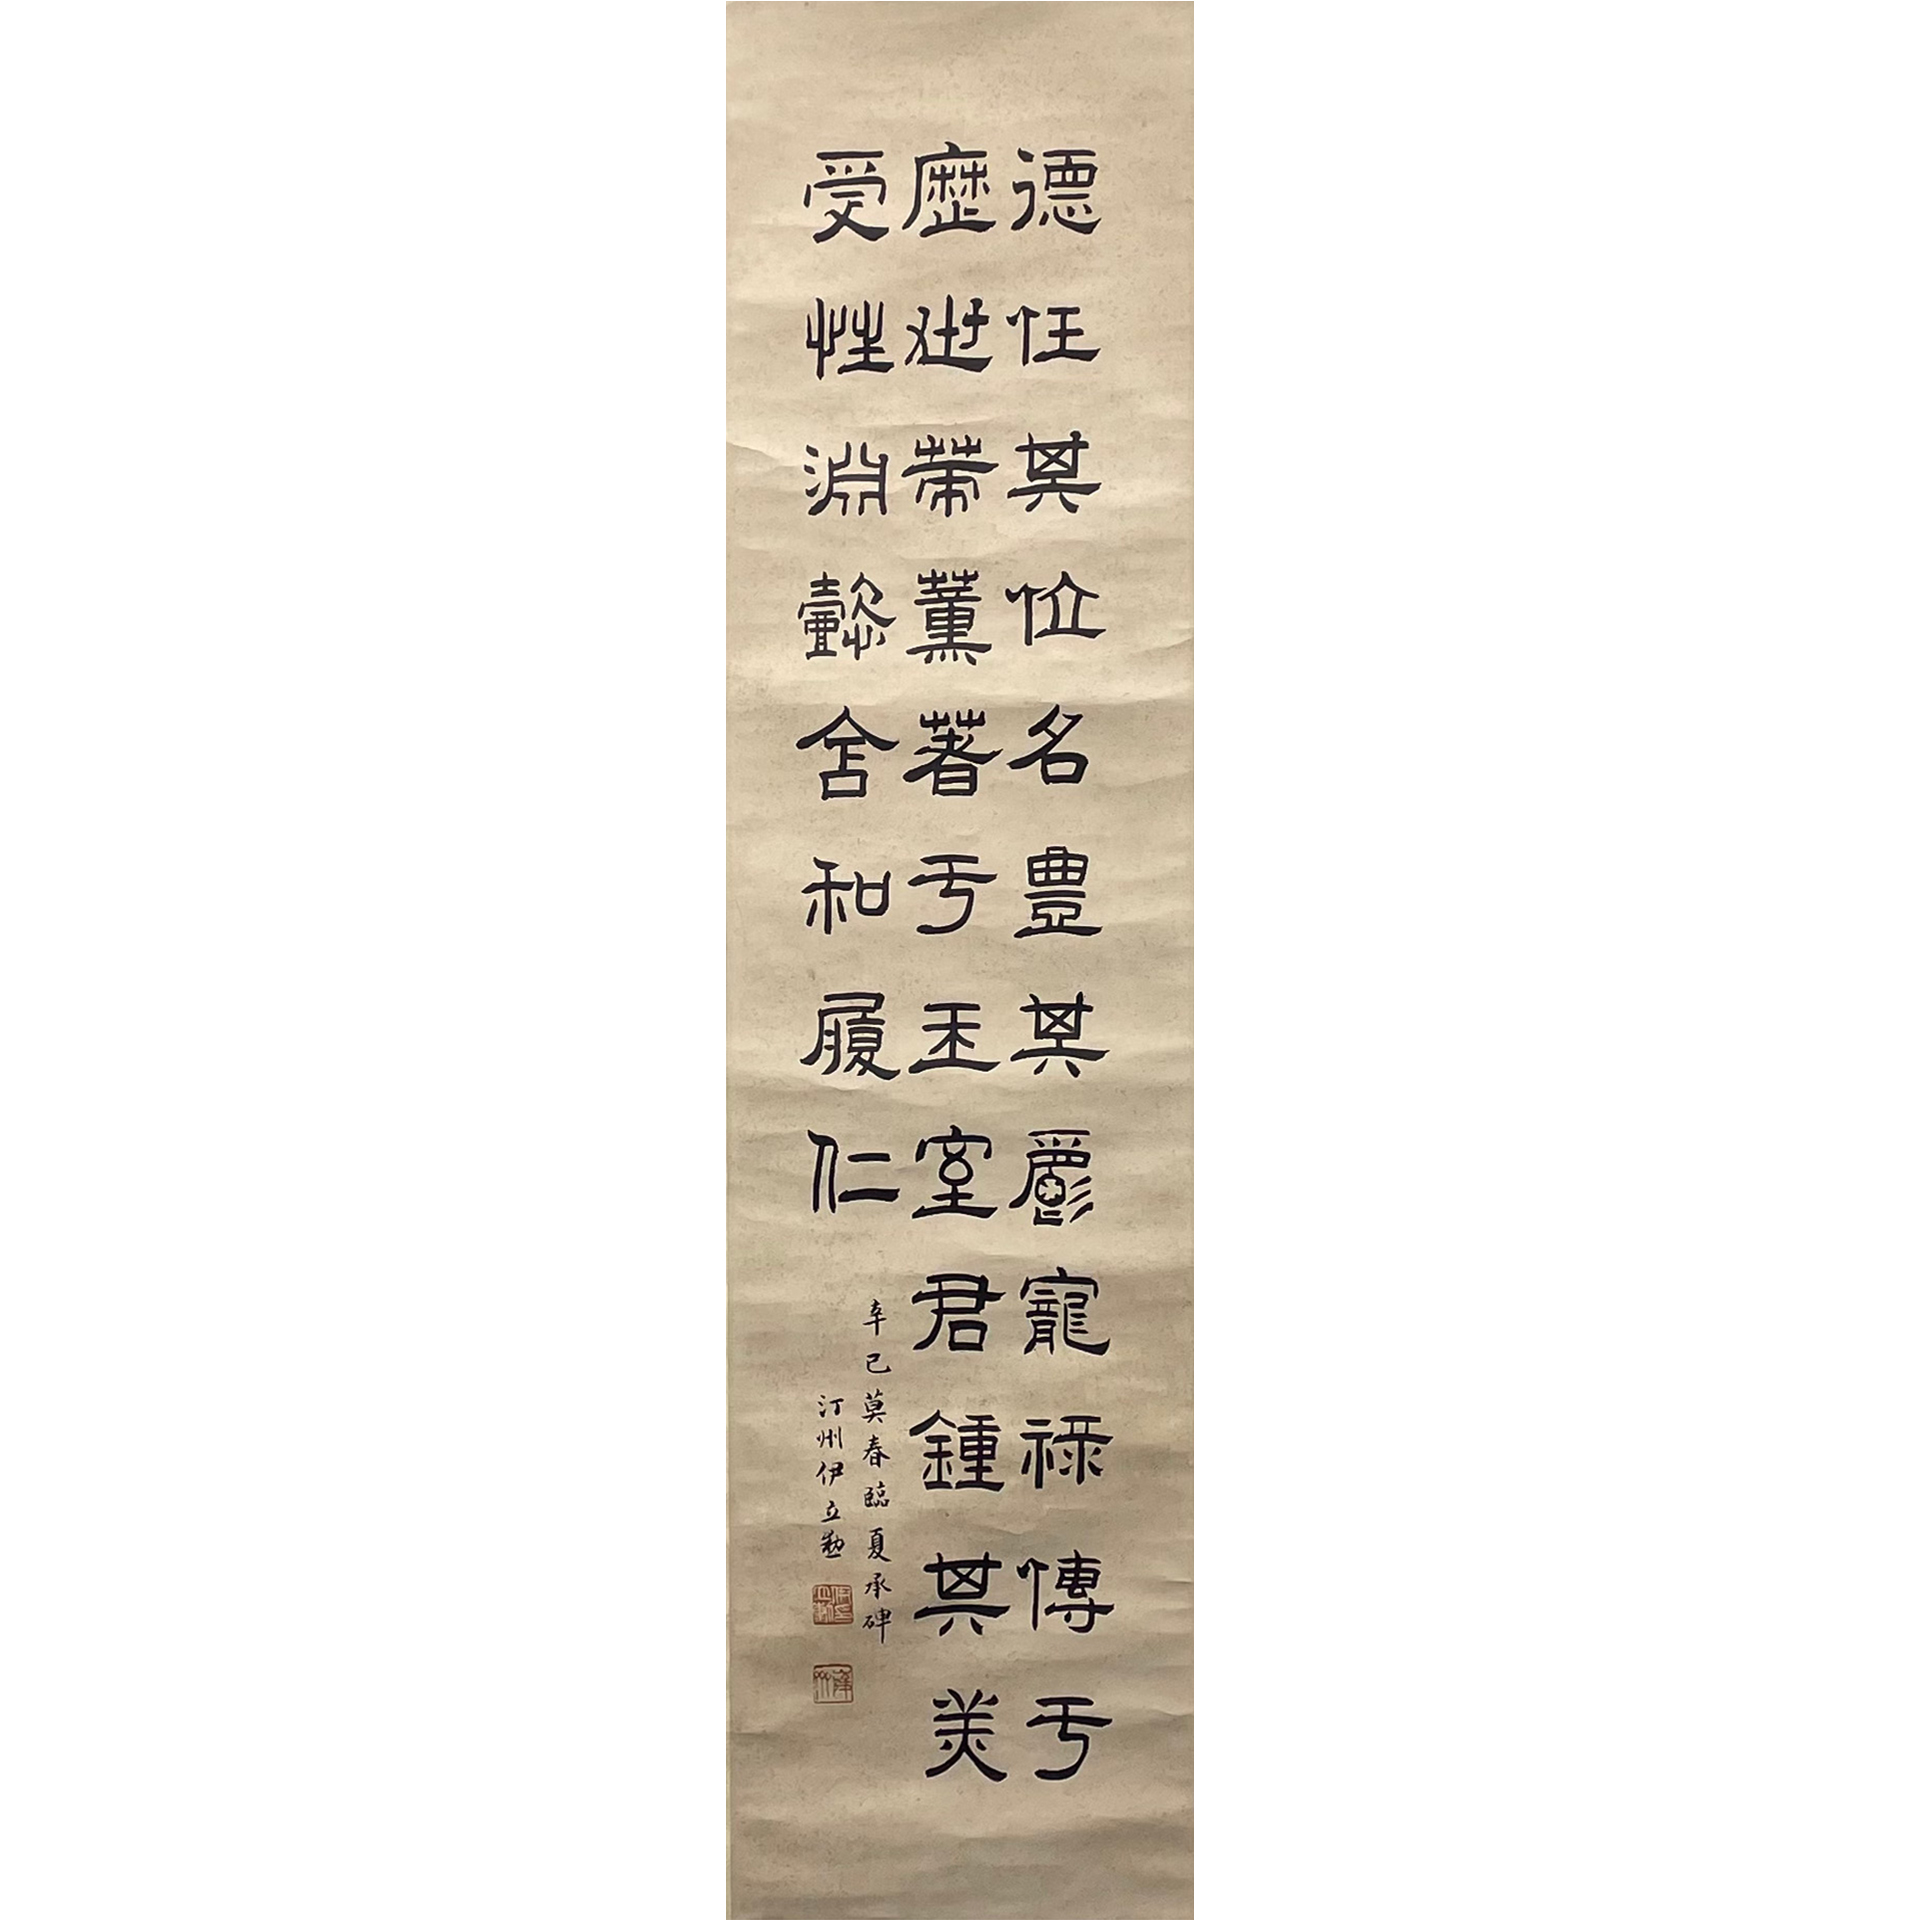 德任其位名豊其爵寵祿傳于
歷世帶薰著于王室君鍾其美
受性淵懿含和履仁
辛巳莫春臨夏承碑
汀州伊立勳